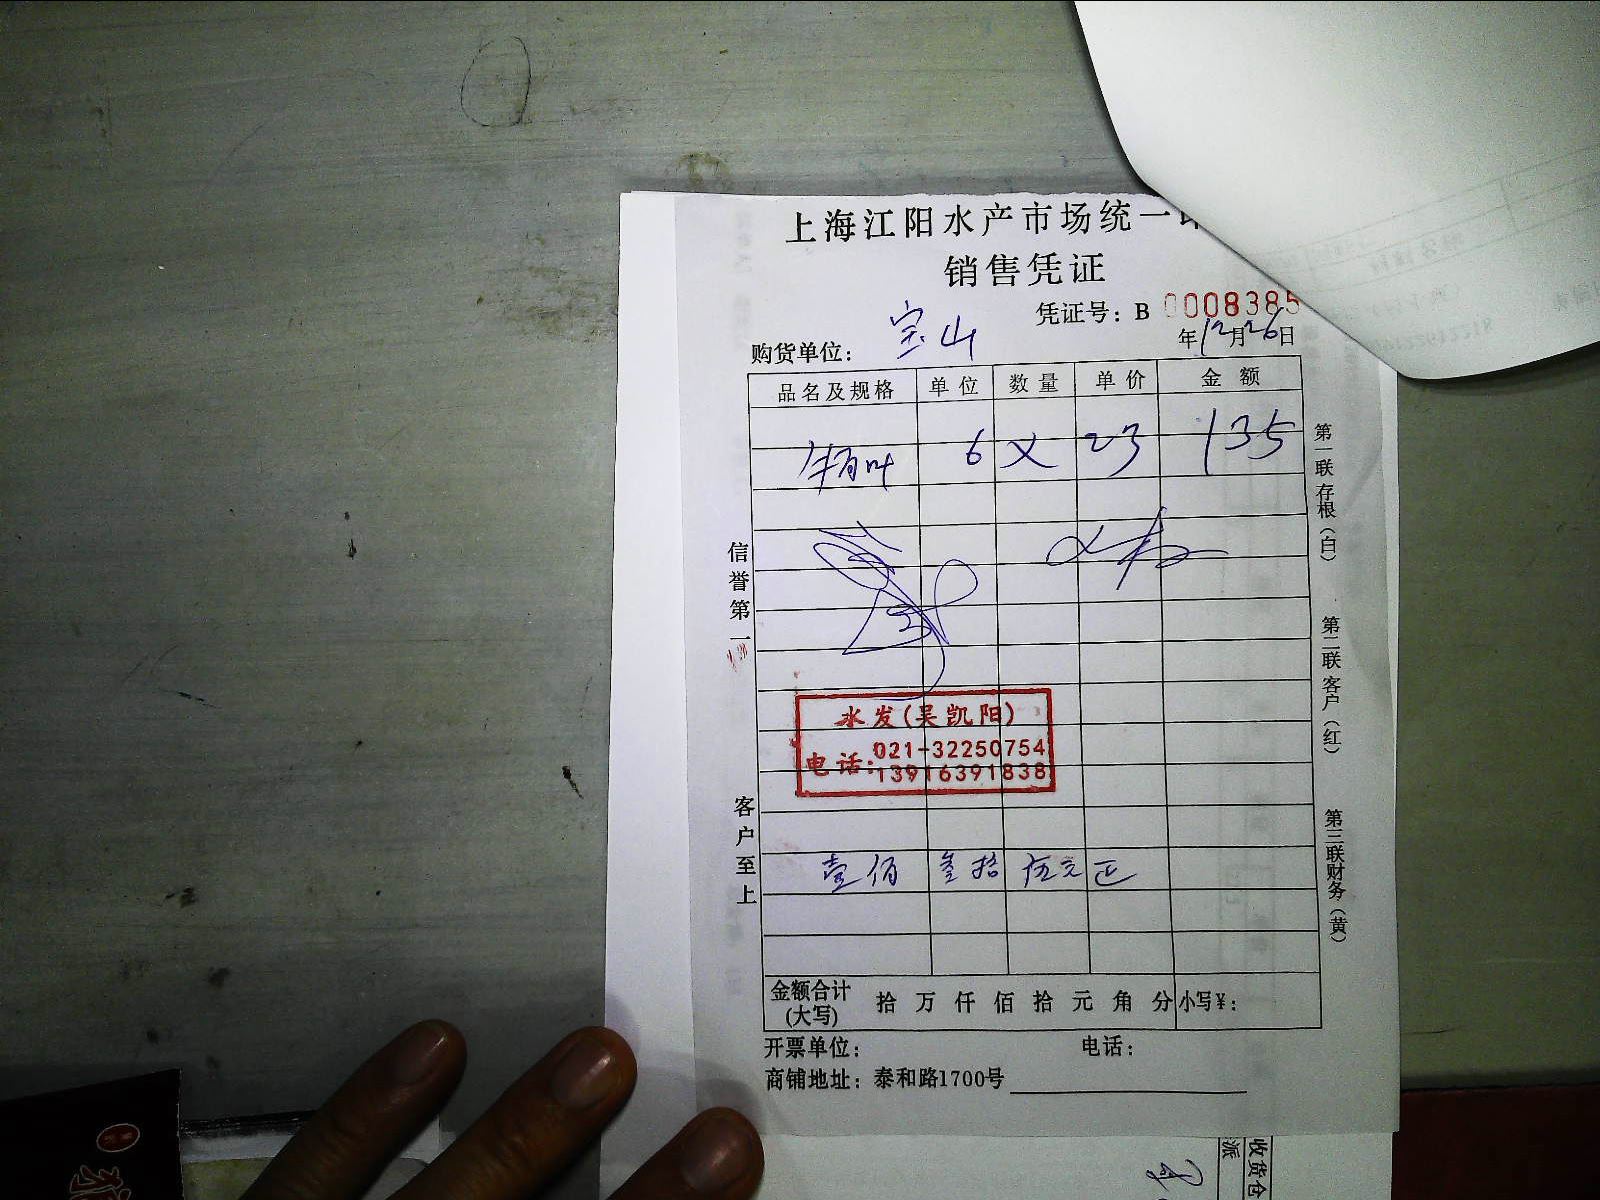 上海江阳水产市场统一
销售凭证
凭证号：B 0008385
购货单位： 宝山 年12月26日
品名及规格 单位 数量 单价 金额
牛百叶 6 × 23 135
水发(吴凯阳)
电话：021-32250754
13916391838
壹佰 叁拾 伍元正
金额合计(大写) 拾 万 仟 佰 拾 元 角 分 小写¥：
开票单位： 电话：
商铺地址：泰和路1700号
信誉第一
客户至上
第一联存根(白)
第二联客户(红)
第三联财务(黄)
收货仓
派